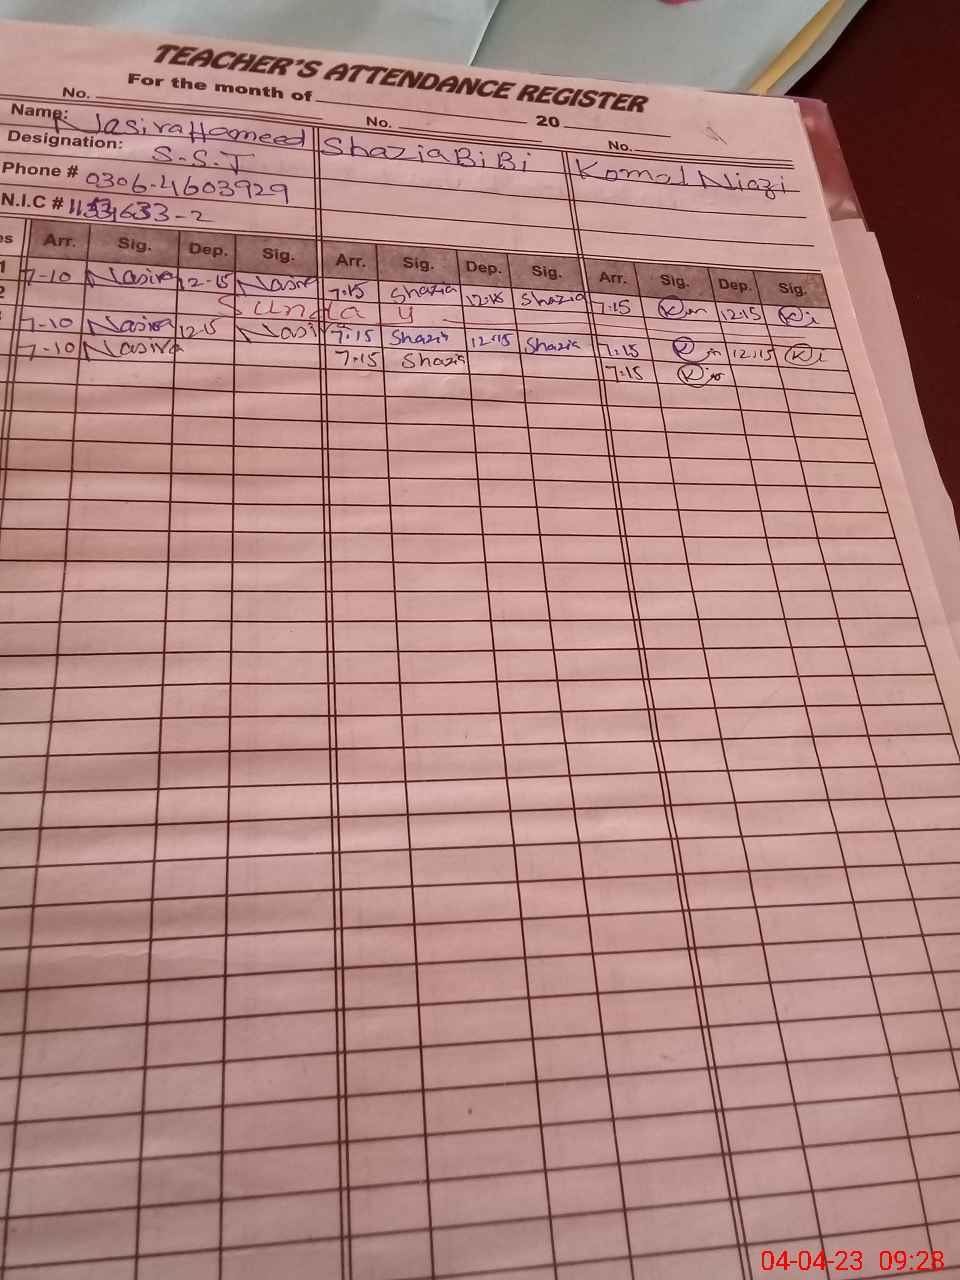 TEACHER'S ATTENDANCE REGISTER
For the month of 20
No. No. No.
Name: Nasira Hameed Shazia BiBi Komal Niazi
Designation: S.S.T
Phone # 0306-4603929
N.I.C #
es Arr. Sig. Dep. Sig. Arr. Sig. Dep. Sig. Arr. Sig. Dep. Sig.
1 7-10 Nasira 12-15 Nasira 7:15 Shazia 12:15 Shazia 7:15 12:15
2 Sunday
7-10 Nasira 12-15 Nasira 7:15 Shazia 12:15 Shazia 7:15 12:15
7-10 Nasira 7:15 Shazia 7:15
04-04-23 09:28